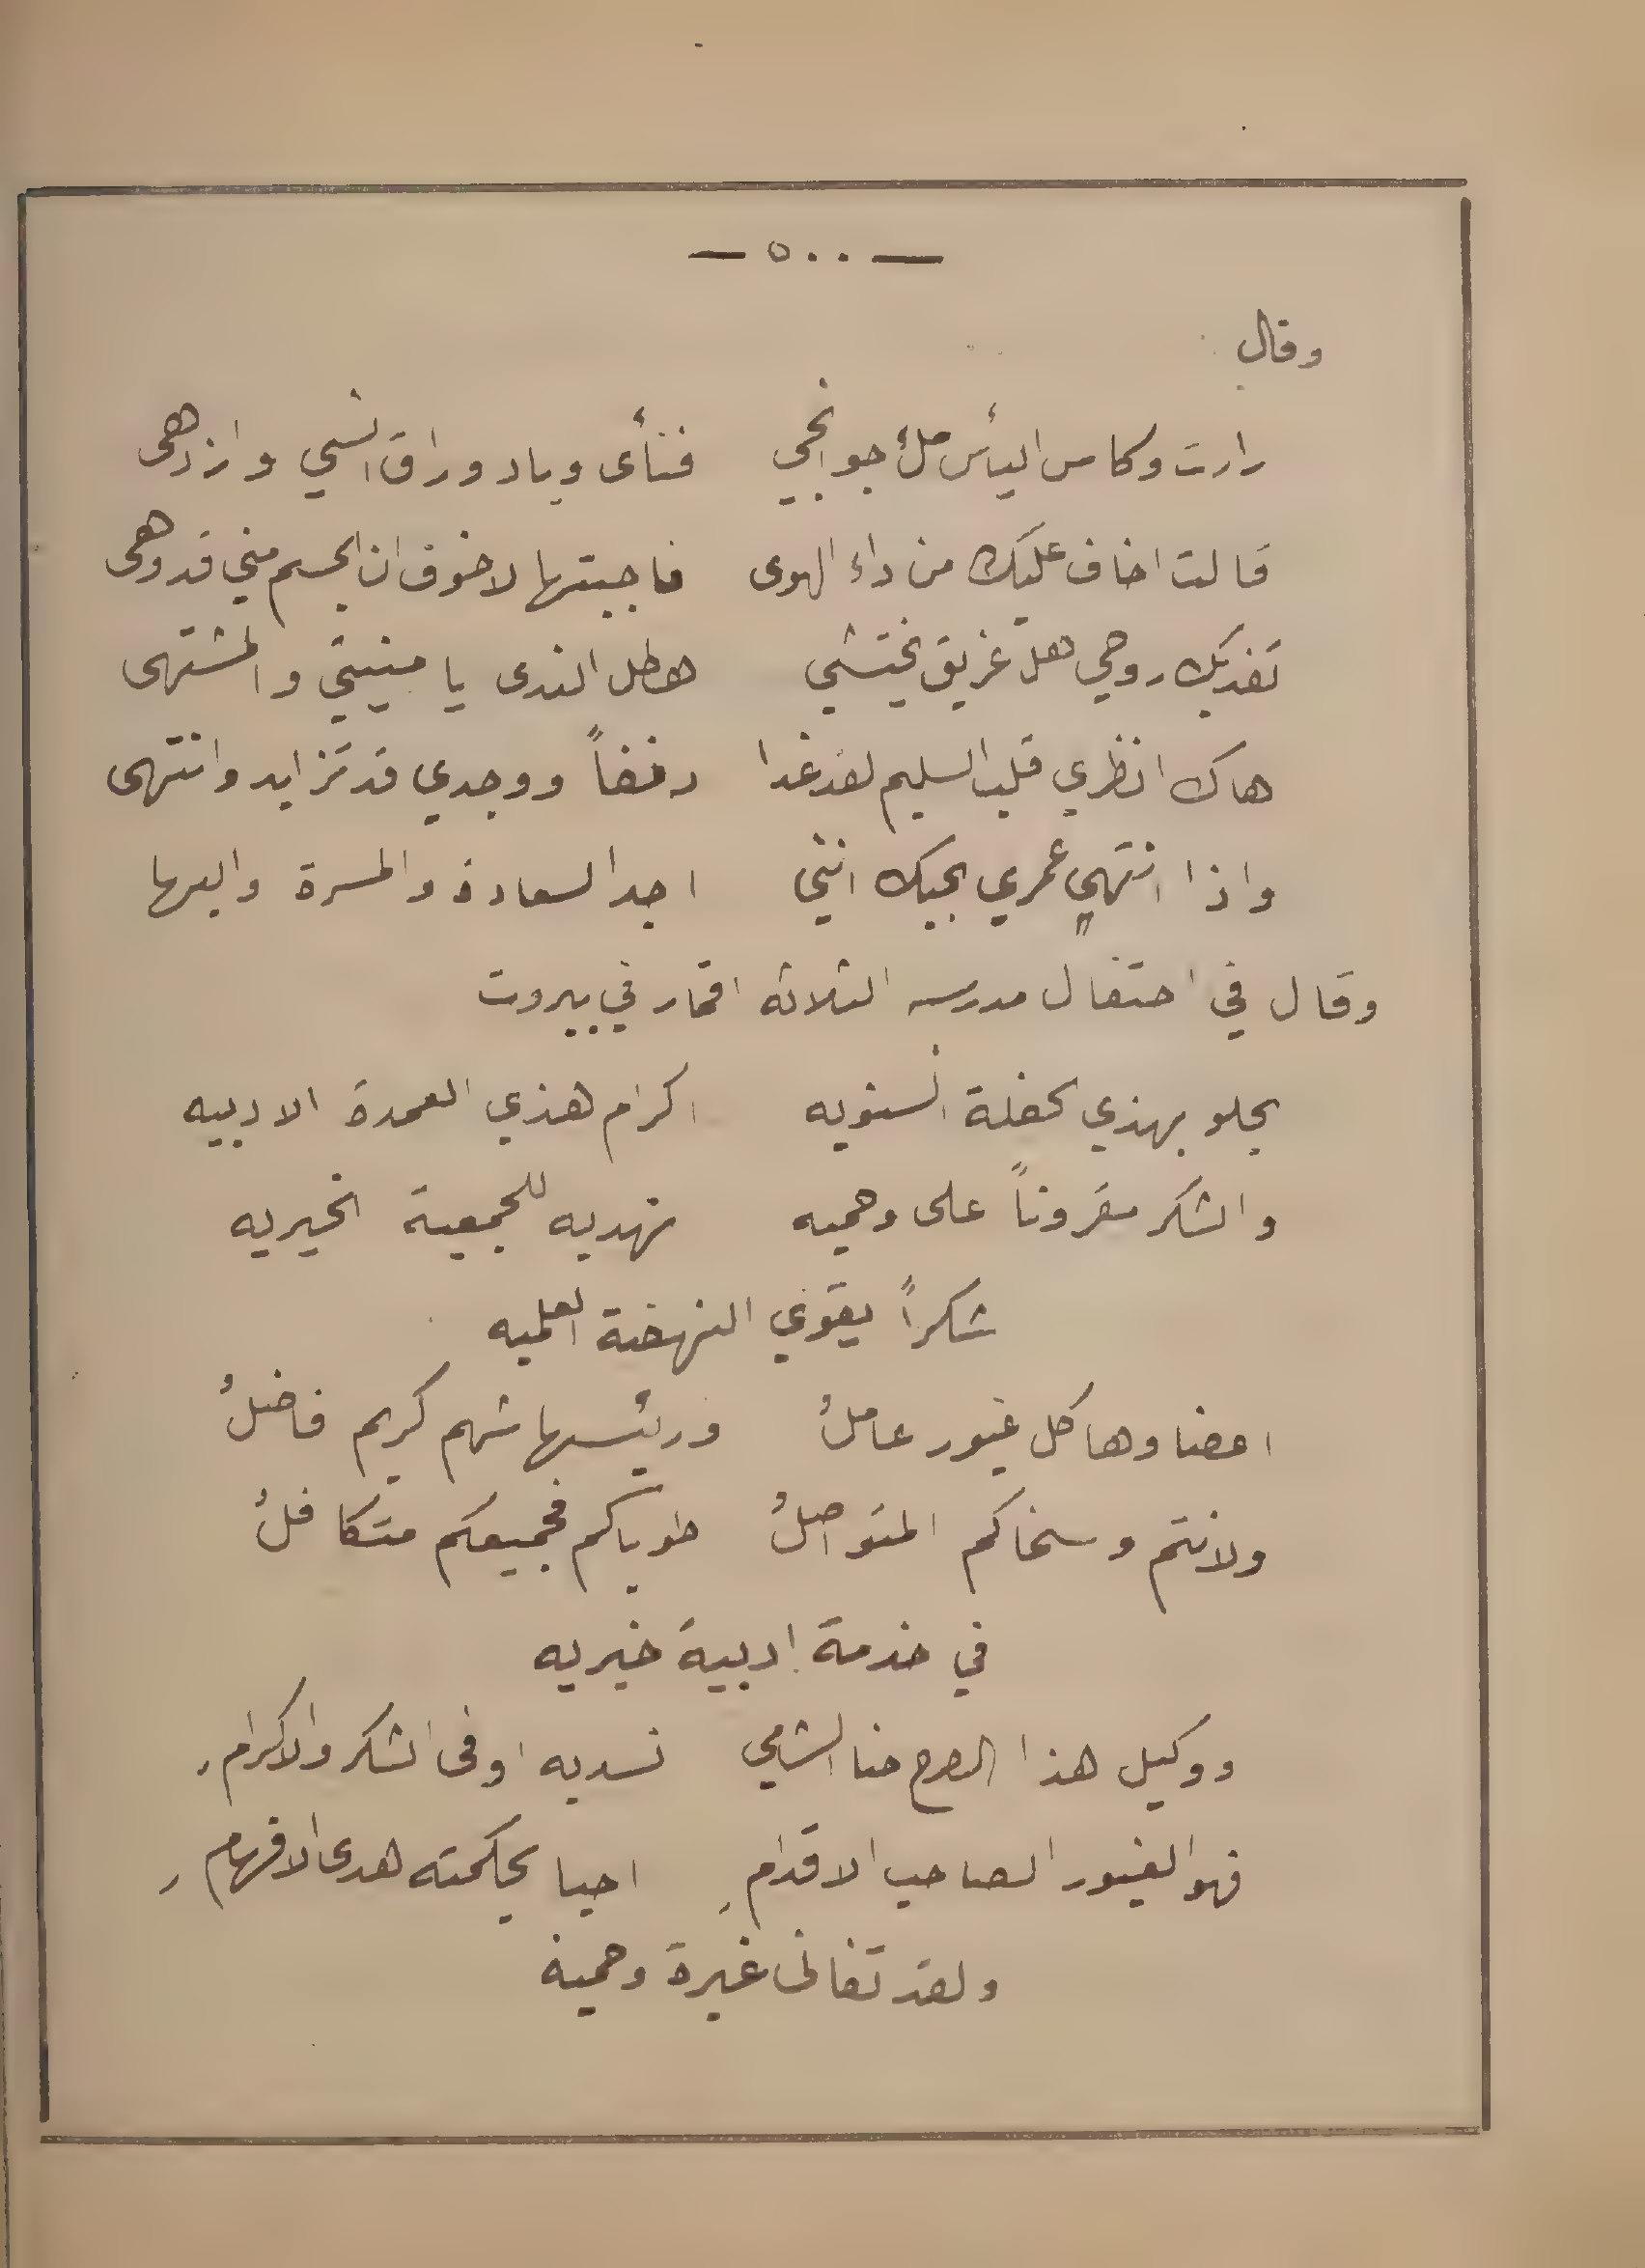 — ٥٠٠ —
وقال
زارت وكاس اليأس ملء جوانحي فنأى وباد وراق انسي وازدهى
قالت اخاف عليك من داء الهوى فاجبتها لا خوف ان الجسم مني قد وهى
تفديك روحي هل غريق يختشي هطل الندى يا منيتي والمشتهى
هاك انظري قلب السليم لقد غدا دنفاً ووجدي قد تزايد وانتهى
واذا انتهى عمري بحبك انني اجد السعادة والمسرة والبها
وقال في احتفال مدرسه الثلاثه اقمار في بيروت
يحلو بهذي الحفلة السنويه اكرام هذي العمدة الادبيه
والشكر مقروناً على وهميه نهديه للجمعية الخيريه
شكراً يقوي النهضة العلميه
اعضاوها كل غيور عاملُ ورئيسها شهم كريم فاضلُ
ولانتم وسخاكم المتواصلُ طوباكم فجميعكم متكافلُ
في خدمة ادبية خيريه
ووكيل هذا الصرح حنا الشامي نسديه اوفى الشكر والاكرامِ
فهو الغيور الصاحب الاقدامِ احيا بحكمته هدى الافهامِ
ولقد تفانى غيرة وحمية